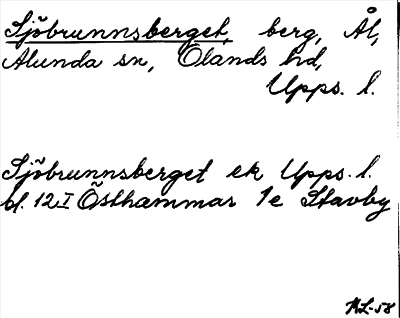 Sjöbrunnsberget, berg, Ål,
Alunda sn, Olands hd,
Upps. l.
Sjöbrunnsberget ek Upps. l.
bl. 12 I Östhammar 1e Stavby
ML-58